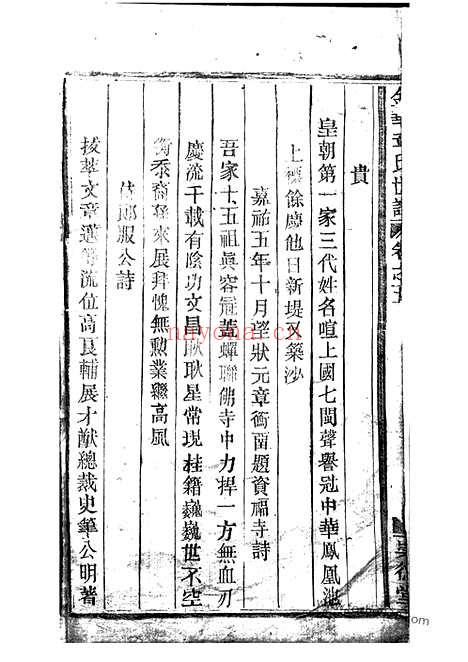 貴
皇朝第一家三代姓名喧上國七閩聲譽冠中華鳳凰池
上餘慶他日新堤築沙
嘉祐五年十月望狀元章衡留題資福寺詩
吾家十五祖眞容冠蓋蟬聯佛寺中力捍一方無血刃
慶流千載有陰功文昌耿耿星常現桂籍巍巍世不空
衡忝裔孫來展拜愧無勲業繼高風
侍郎服公詩
拔萃文章選等流位高良輔展才猷總裁史筆公明著
nayona.cn